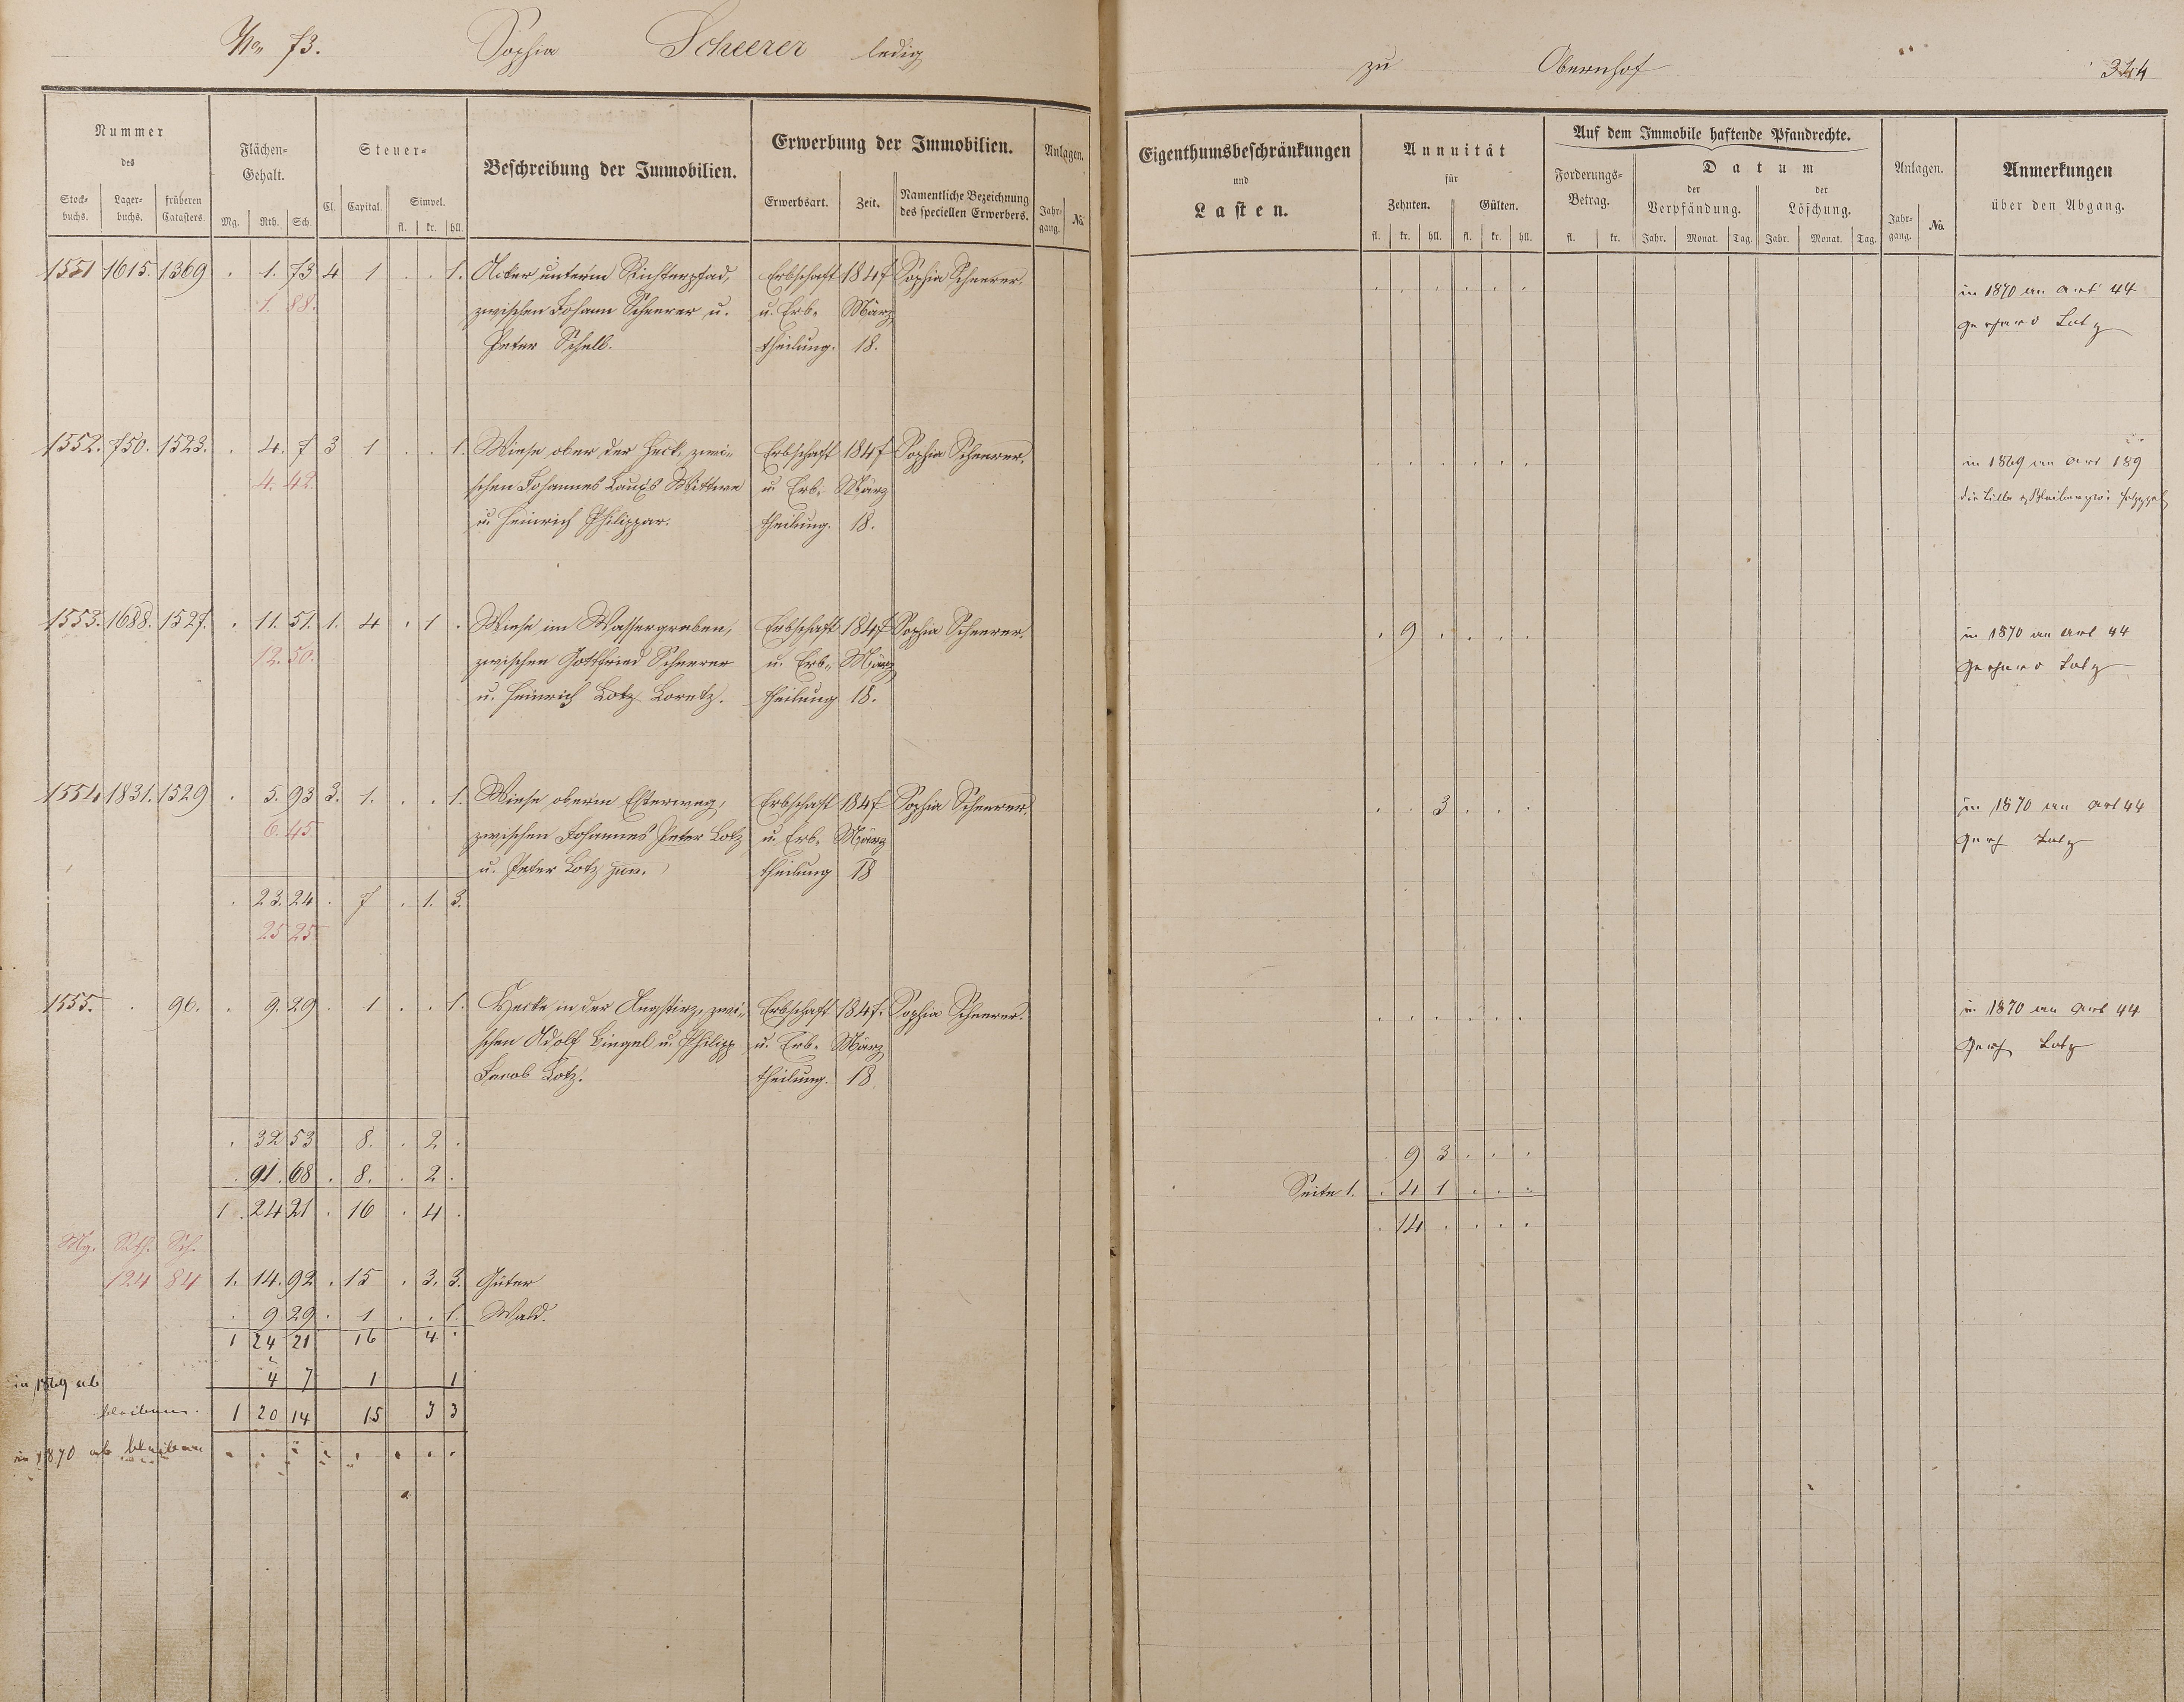 No 73. Sophia Scheerer ledig
zu Obernhof 344
Nummer des
Stock- buchs. Lager- buchs. früheren Catasters.
Flächen- Gehalt.
Mg. Rth. Sch.
Steuer-
Cl. Capital. Simpel.
fl. kr. hll.
Beschreibung der Immobilien.
Erwerbung der Immobilien.
Erwerbsart. Zeit. Namentliche Bezeichnung des speciellen Erwerbers.
Anlagen.
Jahr- gang. No
Eigenthumsbeschränkungen
und
Lasten.
Annuität
für
Zehnten. Gülten.
fl. kr. hll. fl. kr. hll.
Auf dem Immobile haftende Pfandrechte.
Forderungs- Betrag.
fl. kr.
Datum
der Verpfändung. der Löschung.
Jahr. Monat. Tag. Jahr. Monat. Tag.
Anlagen.
Jahr- gang. No
Anmerkungen
über den Abgang.
1551 1615. 1369 . 1. 73 4 1 . . 1. Acker unterm Richterpfad, Erbschaft 1847 Sophia Scheerer. in 1870 an Art 44
1. 88. zwischen Johann Scheerer u. u. Erb- März Gerhard Lotz
Peter Schell. theilung. 18.
1552. 750. 1523. . 4. 7 3 1 . . 1. Wiese ober der Heck, zwi- Erbschaft 1847 Sophia Scheerer. in 1869 an Art 189
4. 42. schen Johannes Laux's Wittwe u. Erb- März die Silber & Bleibergw: Holzappel
u. Heinrich Philippar. theilung. 18.
1553. 1688. 1527. . 11. 51. 1. 4 . 1 . Wiese im Wassergraben, Erbschaft 1847 Sophia Scheerer. . 9 . . . . in 1870 an Art 44
12. 50. zwischen Gottfried Scheerer u. Erb- März Gerhard Lotz
u. Heinrich Lotz Loretz. theilung 18.
1554 1831. 1529 . 5. 93 3. 1. . . 1. Wiese oberm Esterweg, Erbschaft 1847 Sophia Scheerer. . . 3 . . . in 1870 an Art 44
6. 45 zwischen Johannes Peter Lotz u. Erb- März Gerh Lotz
u. Peter Lotz jun. theilung 18
. 23. 24 . 7 . 1. 3.
25 25.
1555. . 96. . 9. 29 . 1 . . 1. Hecke in der , zwi- Erbschaft 1847. Sophia Scheerer. in 1870 an Art 44
schen Adolf Bingel u. Philipp u. Erb- März Gerh Lotz
Jacob Lotz. theilung. 18
. 32 53 8. . 2 . . 9 3 . . .
. 91. 68 . 8. . 2 . Seite 1. . 4 1 . . .
1. 24 21 . 16 . 4 . . 14 . . . .
Mg. Rth. Sch.
124 84 1. 14. 92 . 15 . 3. 3. Güter
. 9 29 . 1 . . 1. Wald.
1 24 21 16 4 .
in 1869 ab 4 7 1 1
bleiben. 1 20 14 15 3 3
in 1870 ab bleiben . . . . . . . .